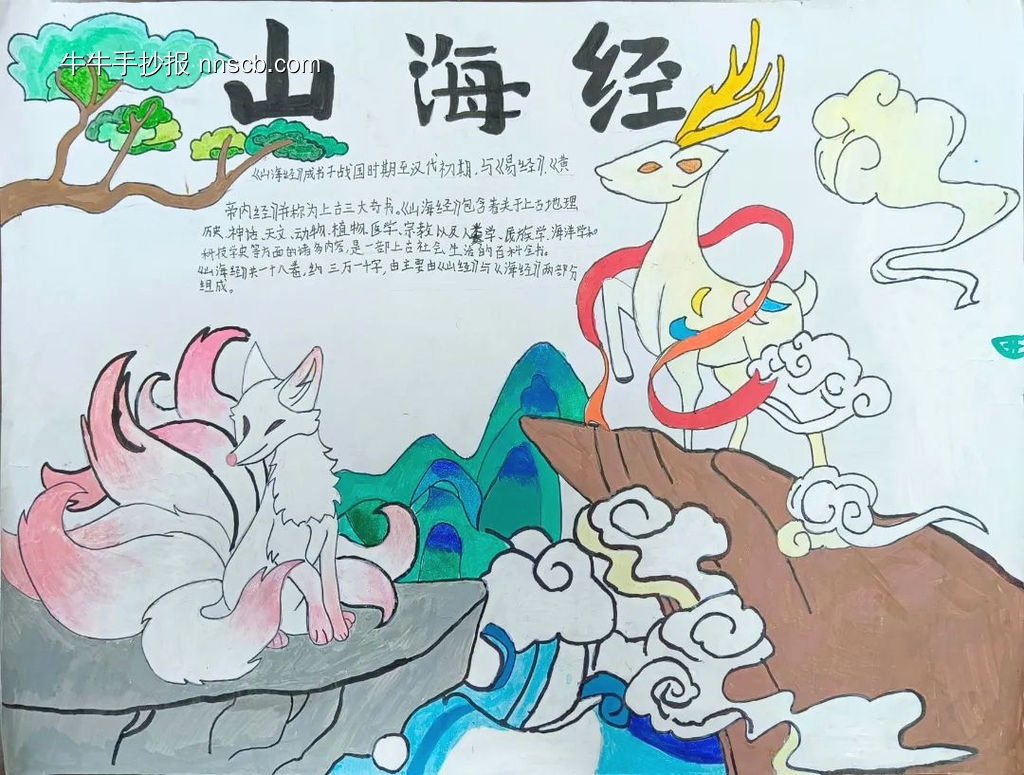 山海经
牛牛手抄报 nnscb.com
《山海经》成书于战国时期至汉代初期，与《易经》、《黄
帝内经》并称为上古三大奇书。《山海经》包含着关于上古地理
历史、神话、天文、动物、植物、医学、宗教以及人类学、民族学、海洋学和
科技学史等方面的诸多内容，是一部上古社会生活的百科全书。
《山海经》共一十八卷，约三万一千字，由主要由《山经》与《海经》两部分
组成。